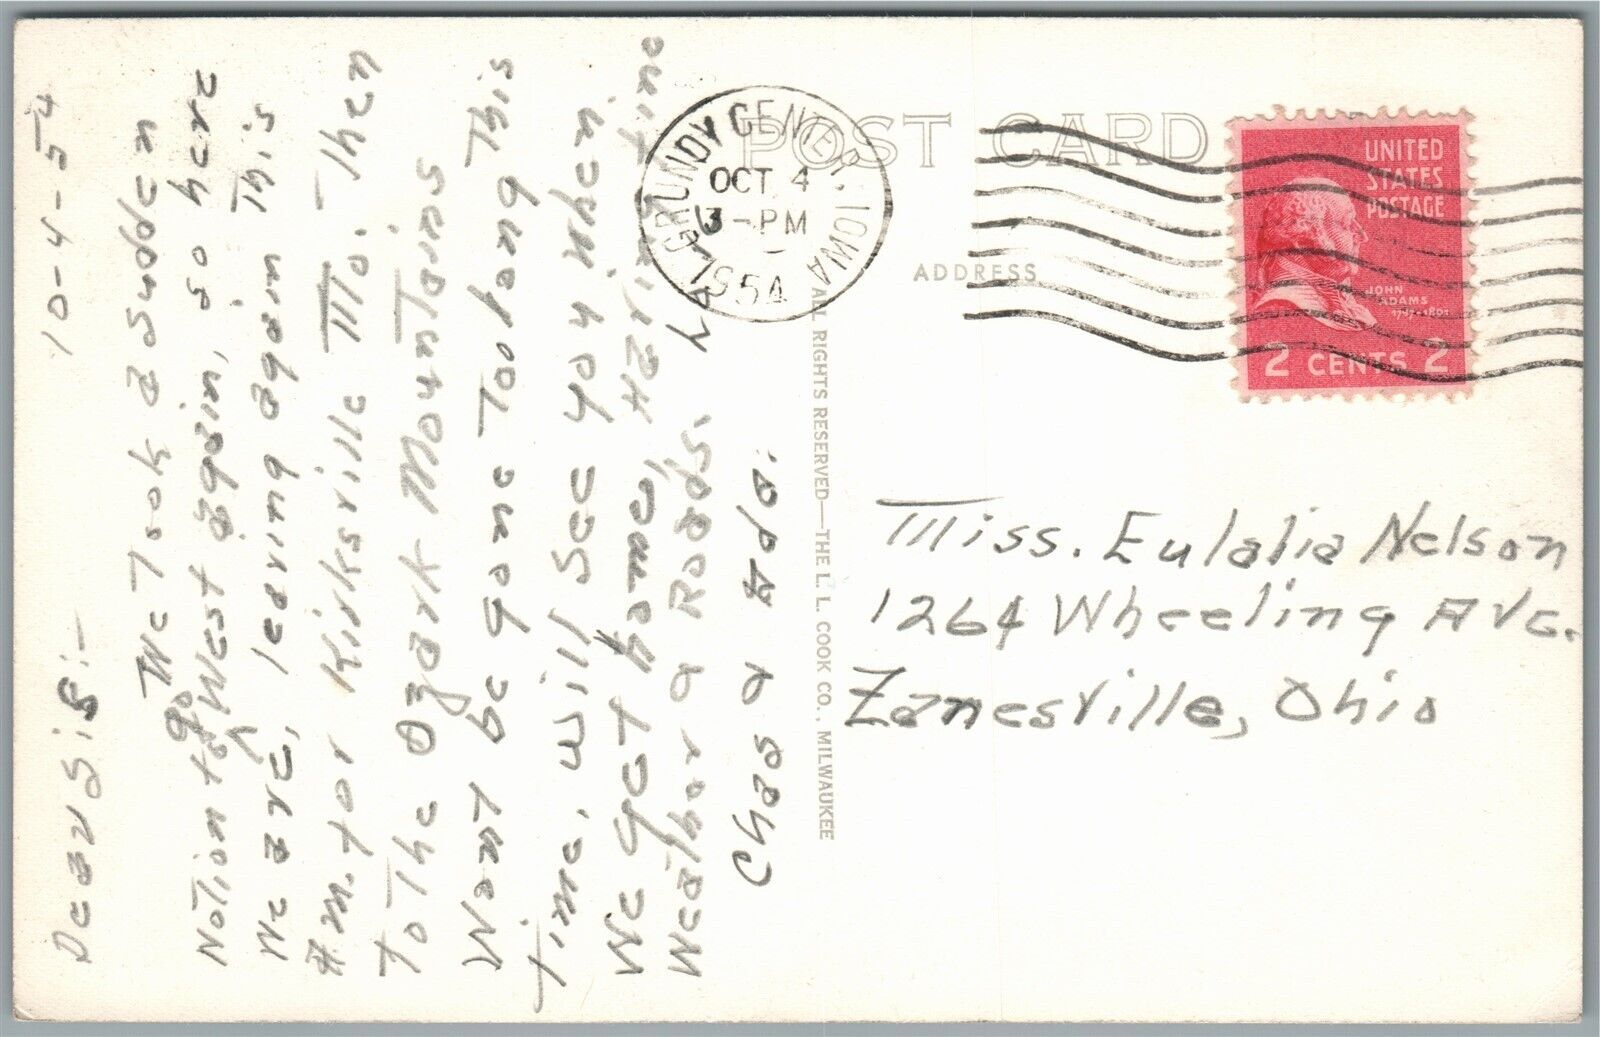 10-4-54
Dear Sis:-
We Took a sudden
Notion to go West again, so here
We are, leaving again This
A.m. for Kirksville Mo. Then
To The Ozark Mountains
Wont be gone Too long This
Time, will see you when
We get home, Having fine
Weather & Roads.
Chas & Ada.
GRUNDY CENTER, IOWA
OCT 4
3-PM
1954
POST CARD
ADDRESS
UNITED
STATES
POSTAGE
JOHN
ADAMS
1797-1801
2 CENTS 2
ALL RIGHTS RESERVED—THE L. L. COOK CO., MILWAUKEE
Miss. Eulalia Nelson
1264 Wheeling Ave.
Zanesville, Ohio